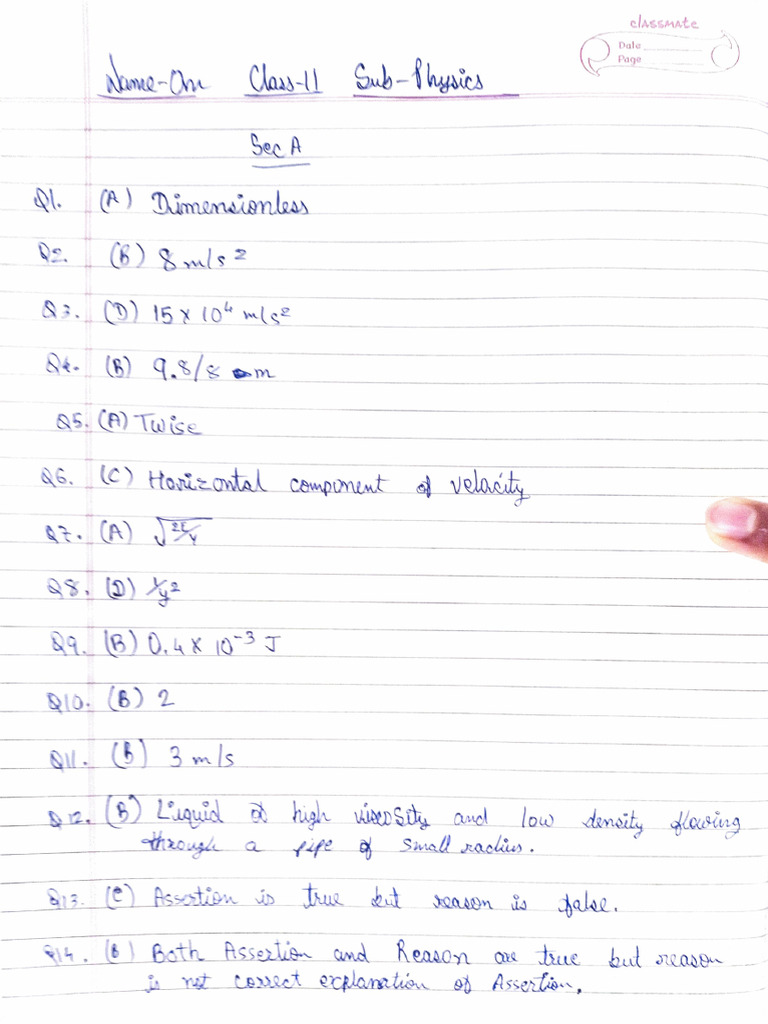 classmate
Date
Page
Name-Om Class-11 Sub-Physics
Sec A
Q1. (A) Dimensionless
Q2. (B) 8 m/s²
Q3. (D) 15 × 10⁴ m/s²
Q4. (B) 9.8/8 m
Q5. (A) Twise
Q6. (C) Horizontal component of velocity
Q7. (A)
Q8. (D) 1/y²
Q9. (B) 0.4 × 10⁻³ J
Q10. (B) 2
Q11. (B) 3 m/s
Q12. (B) Liquid of high viscosity and low density flowing
through a pipe of small radius.
Q13. (C) Assertion is true but reason is false.
Q14. (B) Both Assertion and Reason are true but reason
is not correct explanation of Assertion.